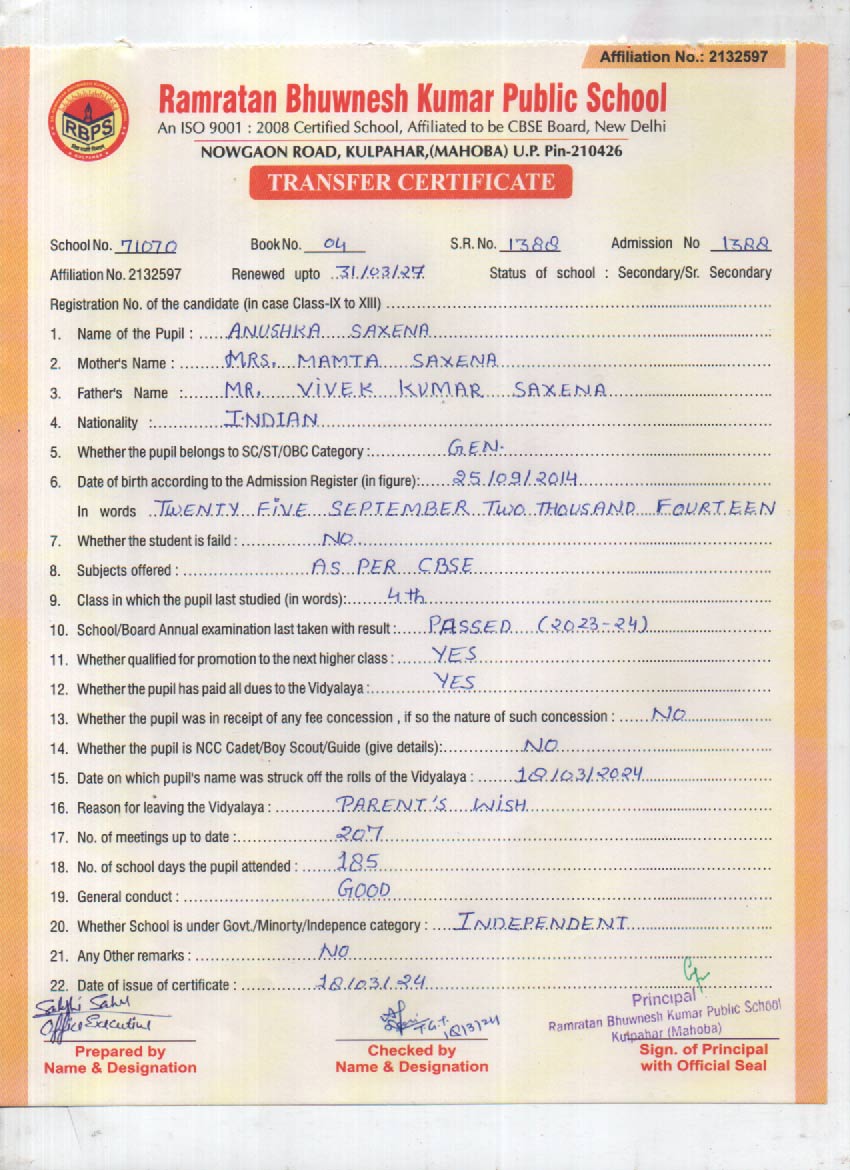 Affiliation No.: 2132597
RBPS
Ramratan Bhuwnesh Kumar Public School
An ISO 9001 : 2008 Certified School, Affiliated to be CBSE Board, New Delhi
NOWGAON ROAD, KULPAHAR,(MAHOBA) U.P. Pin-210426
TRANSFER CERTIFICATE
School No. 71070 Book No. 04 S.R. No. 1388 Admission No 1388
Affiliation No. 2132597 Renewed upto 31/03/27 Status of school : Secondary/Sr. Secondary
Registration No. of the candidate (in case Class-IX to XIII)
1. Name of the Pupil : ANUSHKA SAXENA
2. Mother's Name : MRS. MAMTA SAXENA
3. Father's Name : MR. VIVEK KUMAR SAXENA
4. Nationality : INDIAN
5. Whether the pupil belongs to SC/ST/OBC Category : GEN.
6. Date of birth according to the Admission Register (in figure): 25/09/2014
In words TWENTY FIVE SEPTEMBER TWO THOUSAND FOURTEEN
7. Whether the student is faild : NO
8. Subjects offered : AS PER CBSE
9. Class in which the pupil last studied (in words): 4th
10. School/Board Annual examination last taken with result : PASSED (2023-24)
11. Whether qualified for promotion to the next higher class : YES
12. Whether the pupil has paid all dues to the Vidyalaya : YES
13. Whether the pupil was in receipt of any fee concession , if so the nature of such concession : NO
14. Whether the pupil is NCC Cadet/Boy Scout/Guide (give details): NO
15. Date on which pupil's name was struck off the rolls of the Vidyalaya : 18/03/2024
16. Reason for leaving the Vidyalaya : PARENT'S WISH
17. No. of meetings up to date : 207
18. No. of school days the pupil attended : 185
19. General conduct : GOOD
20. Whether School is under Govt./Minorty/Indepence category : INDEPENDENT
21. Any Other remarks : NO
22. Date of issue of certificate : 18/03/24
Sakshi Sahu
Office Executive
T.G.T.
18/3/24
Principal
Ramratan Bhuwnesh Kumar Public School
Kulpahar (Mahoba)
Prepared by Checked by Sign. of Principal
Name & Designation Name & Designation with Official Seal